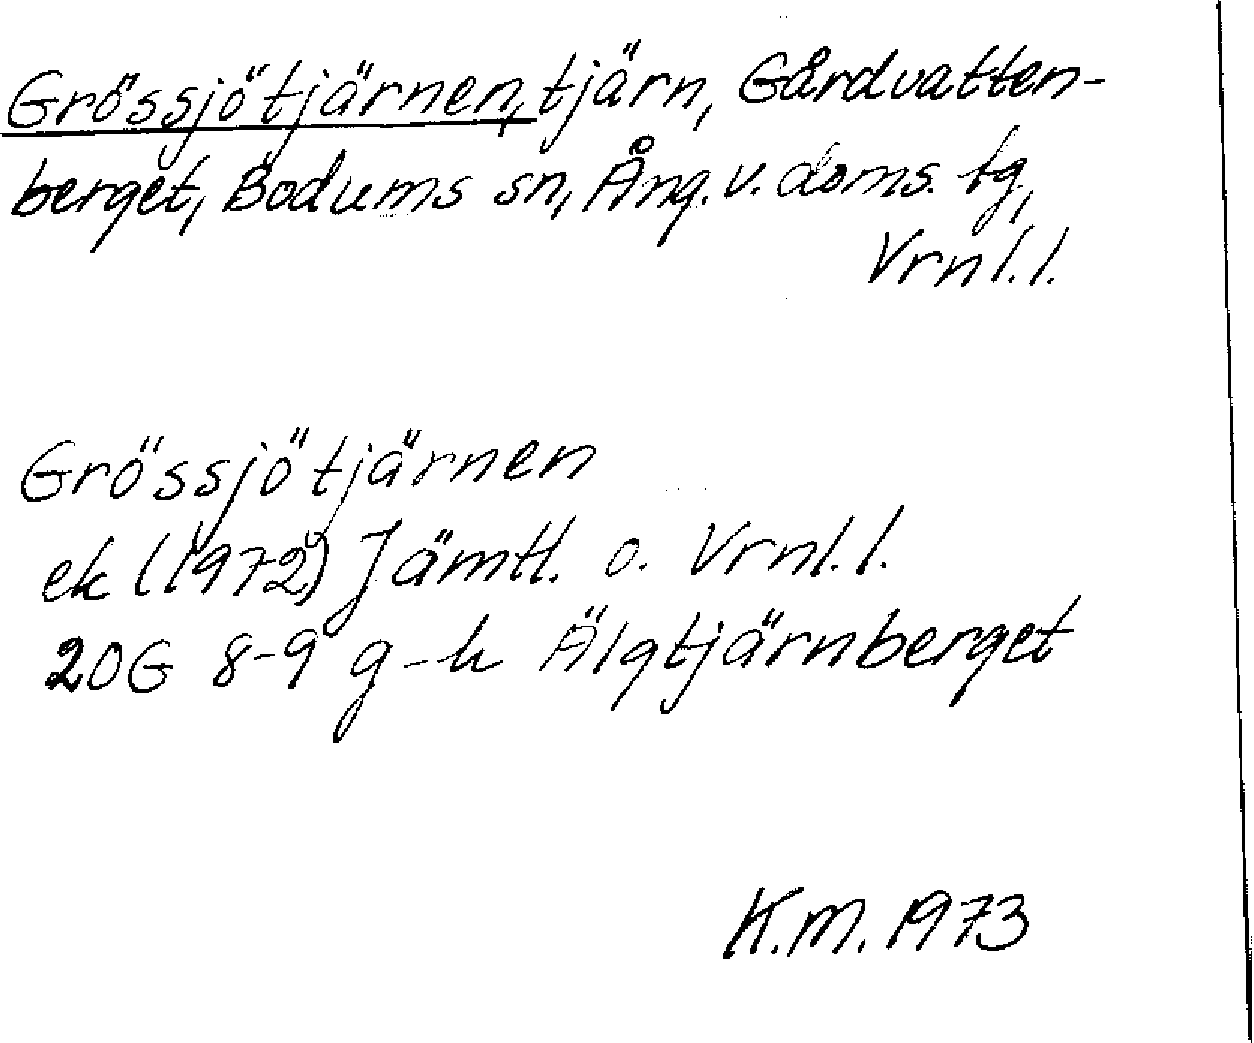 Grössjötjärnen, tjärn, Gårdvatten-
berget, Bodums sn, Ång. v. doms. tg,
Vrnl.l.
Grössjötjärnen
ek (1972) Jämtl. o. Vrnl.l.
20G 8-9 g-h Älgtjärnberget
K.M. 1973